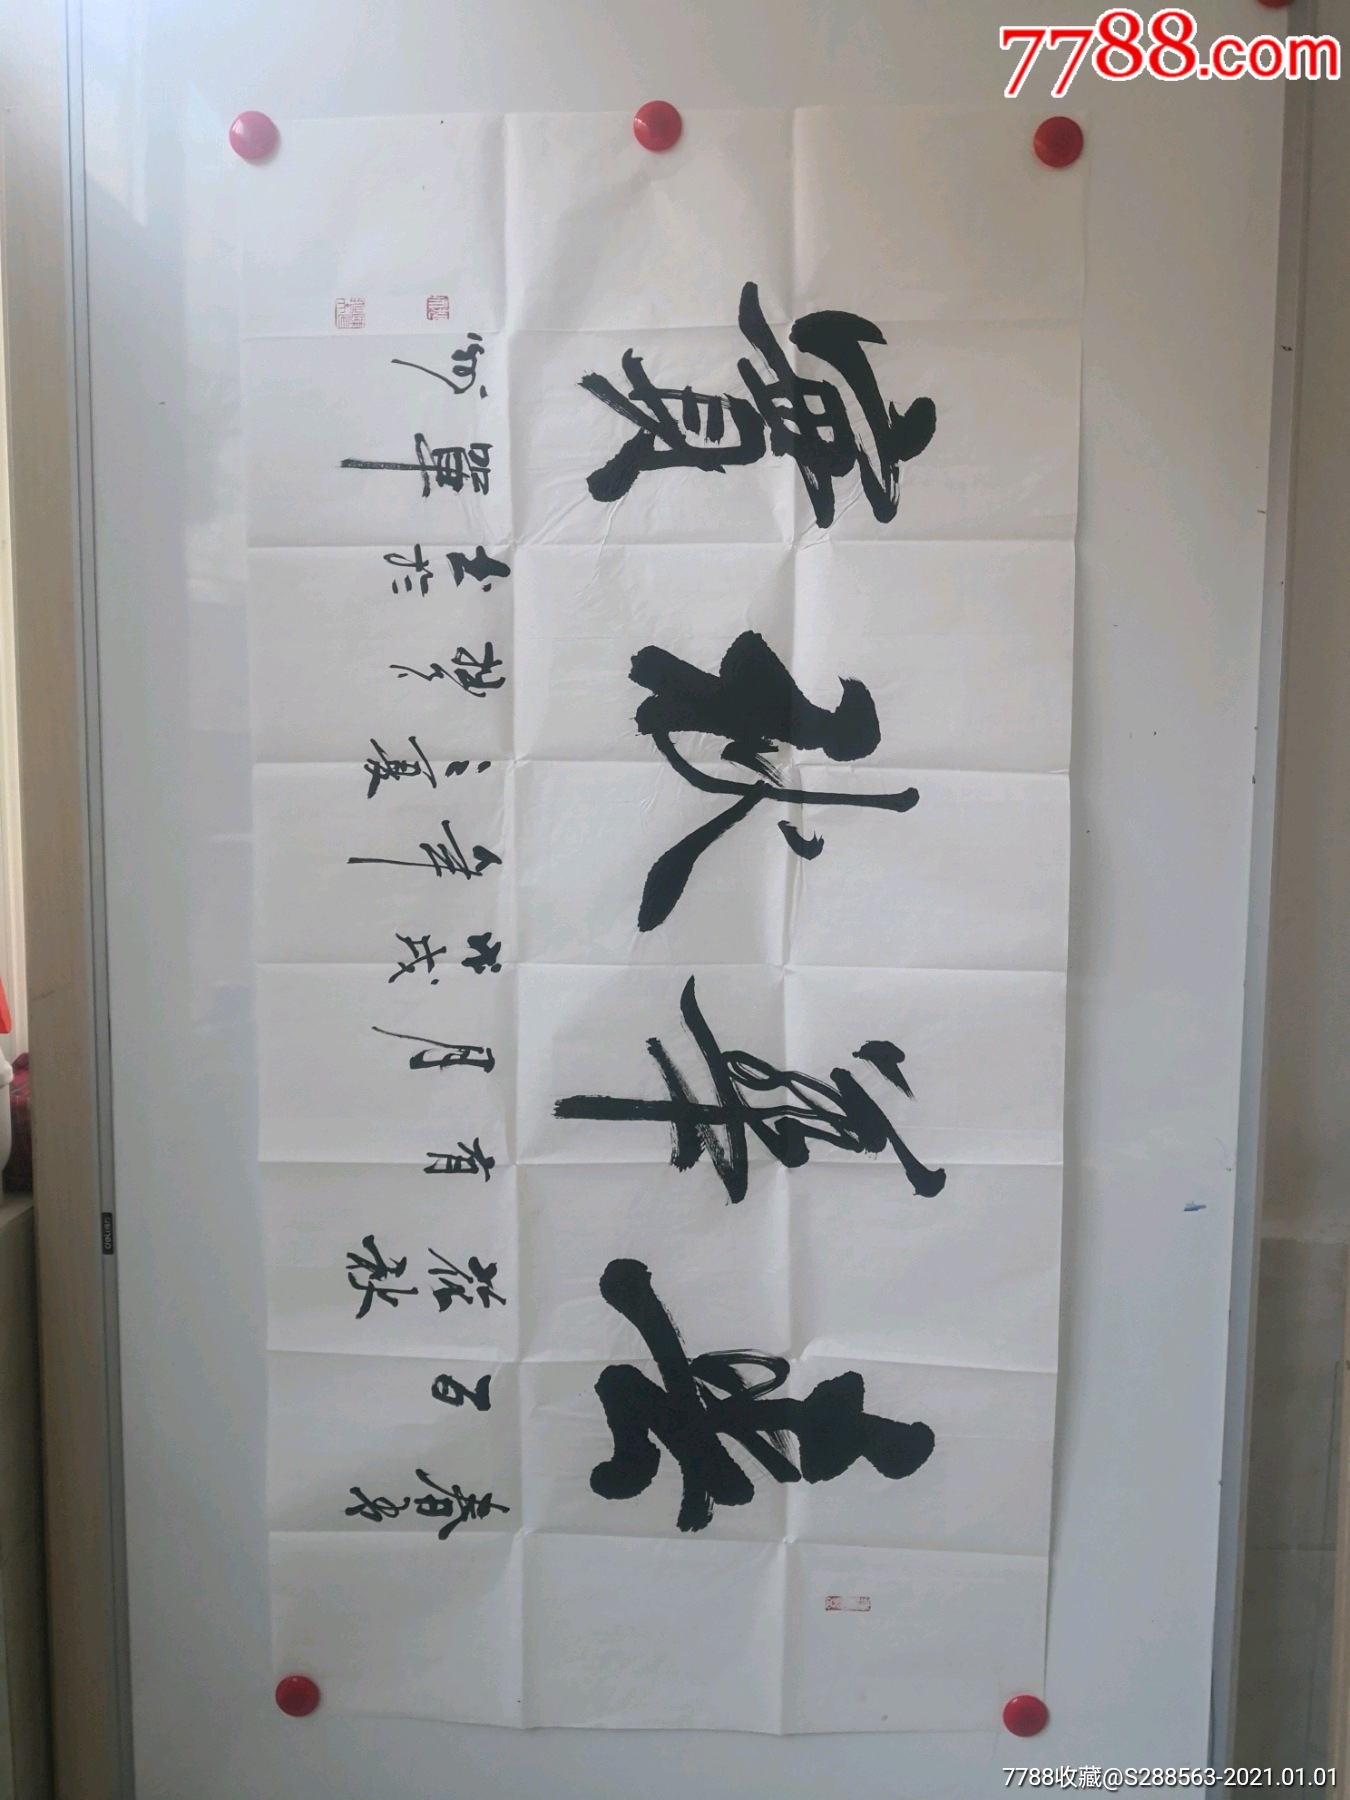 7788.com
春華秋實
春有百花秋有月戊戌年之夏
書於
7788收藏@S288563-2021.01.01